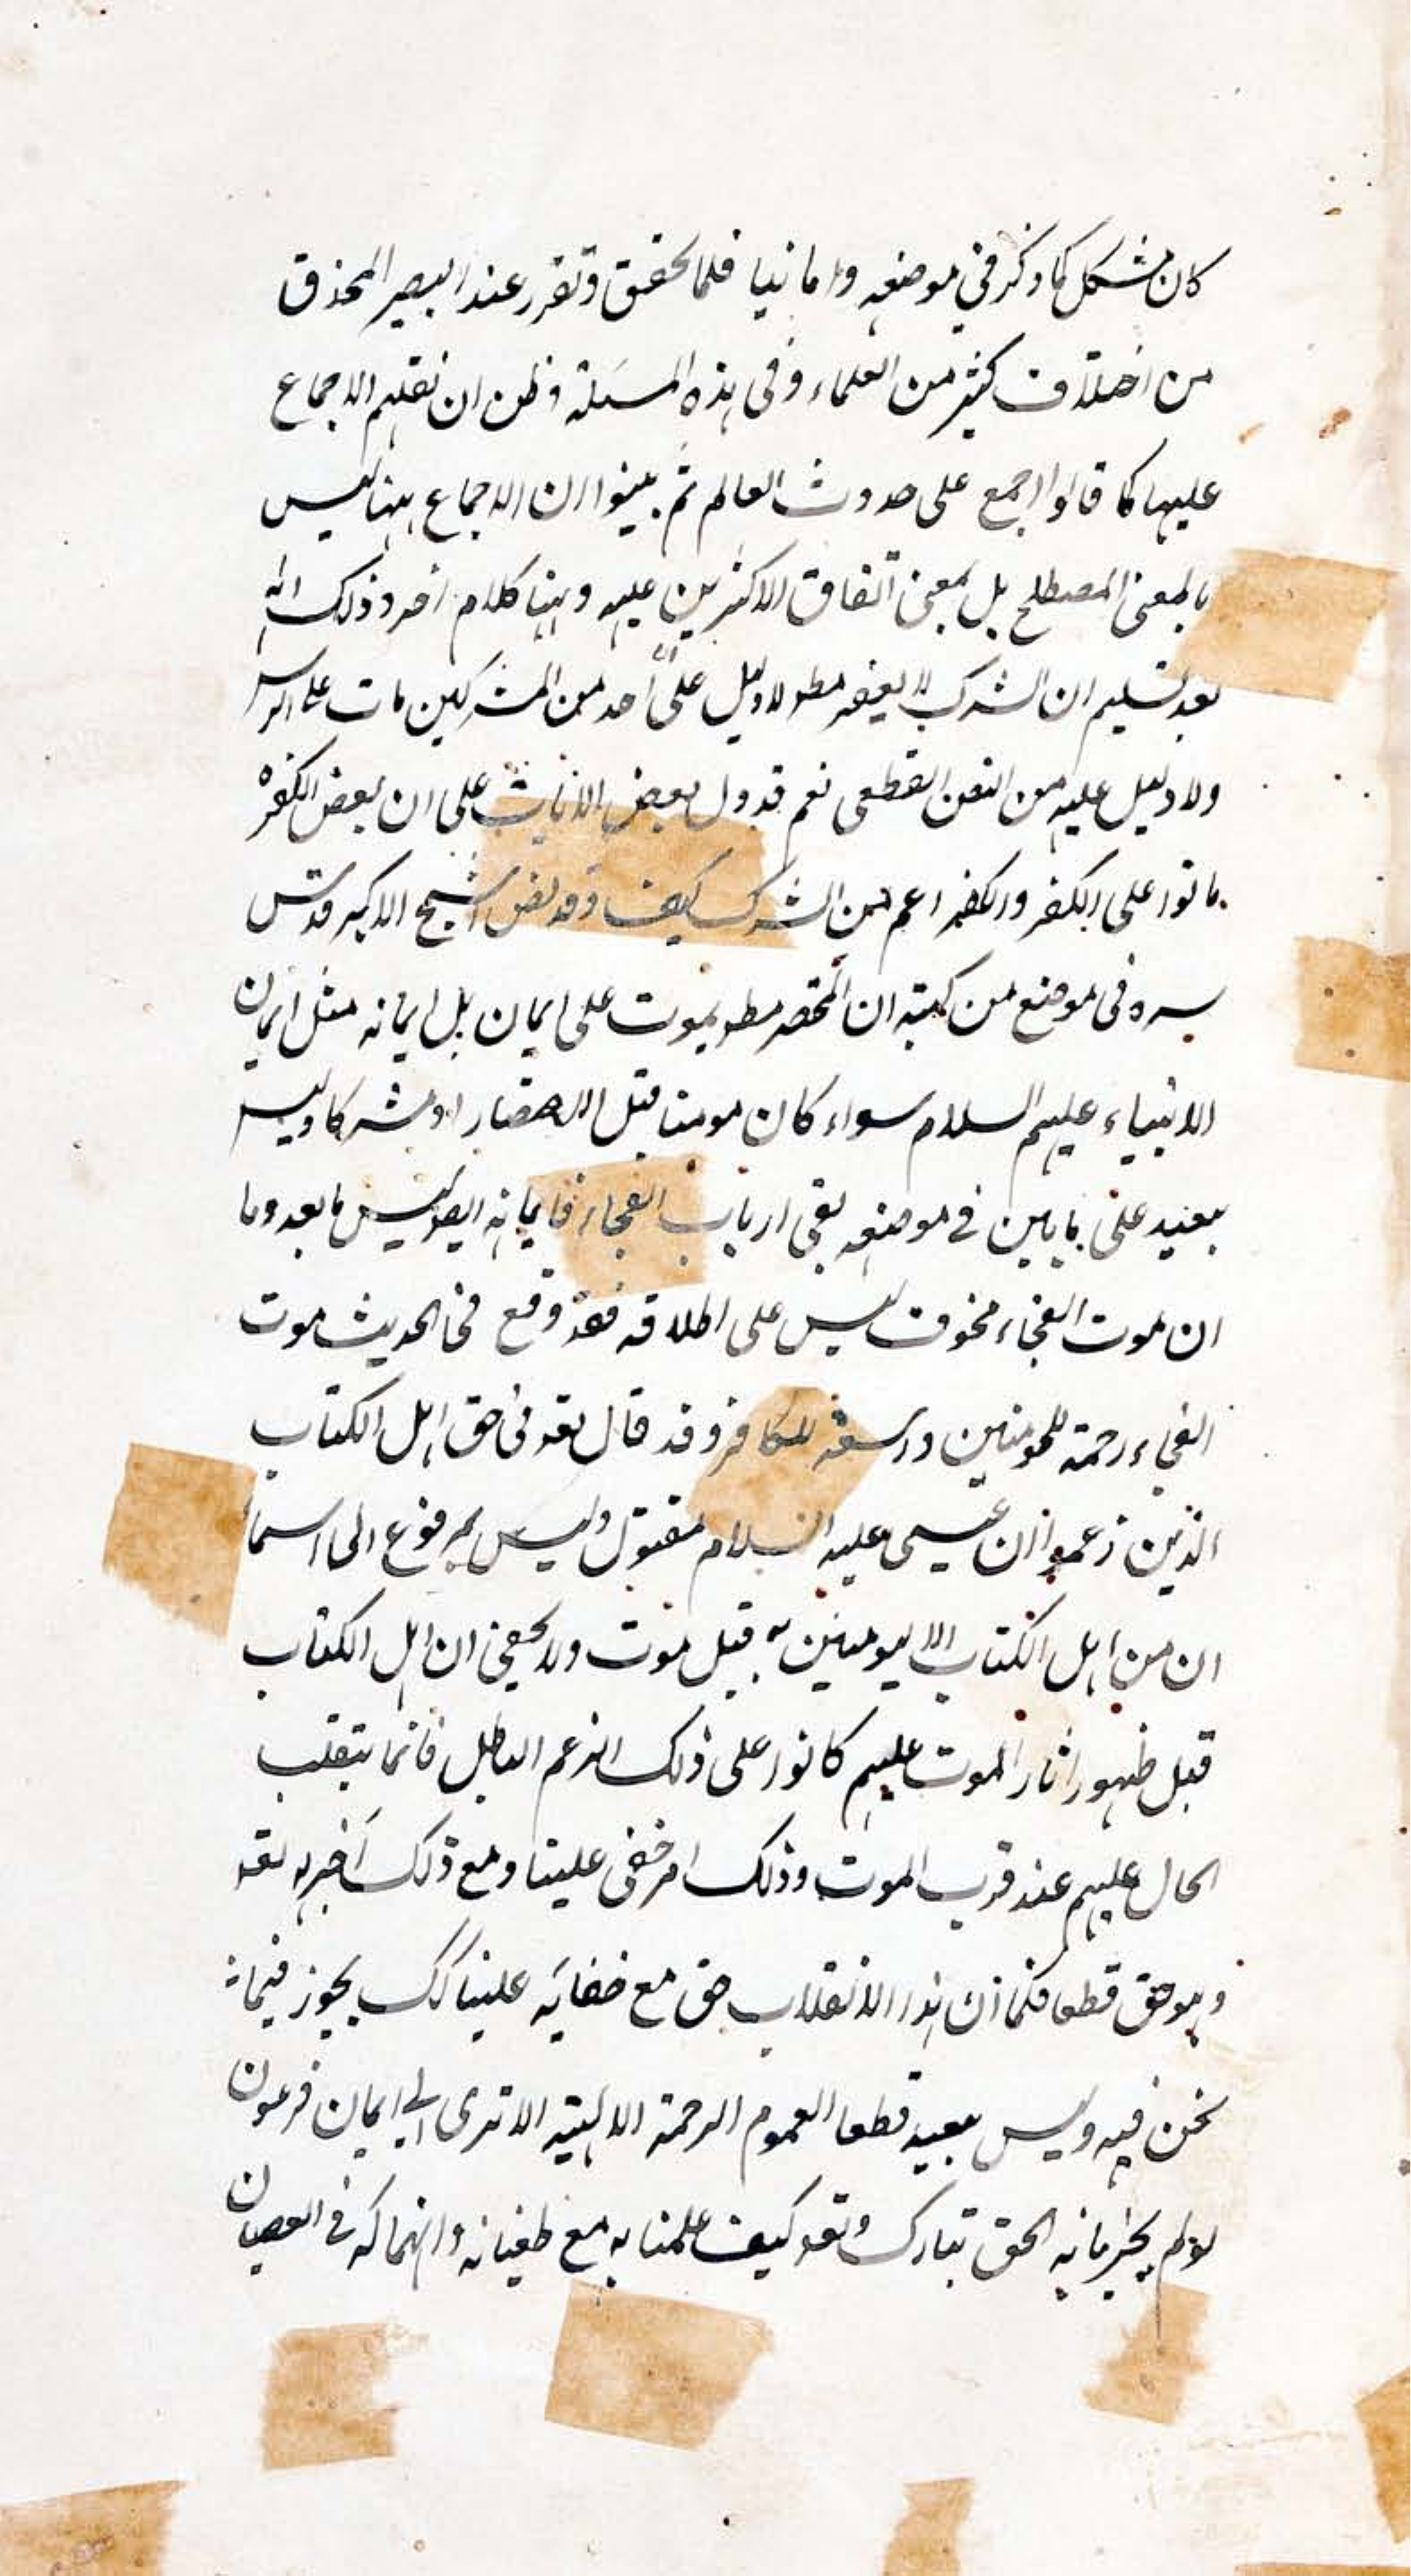 كان مشكل كما ذكر في موضعه واما ثانيا فلما تحقق وتقرر عند البصير المحذق
من اختلاف كثير من العلماء وفى هذه المسئلة وظن ان نقلهم الاجماع
عليها كما قالوا اجمع على حدوث العالم ثم بينوا ان الاجماع ههنا ليس
بالمعنى المصطلح بل بمعنى اتفاق الاكثرين عليه وههنا كلام اخر وذلك انه
بعد تسليم ان الشرك لا يغفر مط ولا دليل على ان احد من المشركين مات على الشرك
ولا دليل عليه من النص القطعى نعم قد دل بعض الايات على ان بعض الكفرة
ماتوا على الكفر والكفر اعم من الشرك كيف وقد نص الشيخ الاكبر قدس
سره فى موضع من كتبه ان المحتضر مط يموت على ايمان بل ايمانه مثل ايمان
الانبياء عليهم السلام سواء كان مومنا قبل الاحتضار او مشركا وليس
ببعيد على ما بين في موضعه بقى ارباب الفجاء فايمانه ايضا ليس ما بعد وما
ان موت الفجاء مخوف ليس على اطلاقه فقد وقع فى الحديث موت
الفجاء رحمة للمومنين و للكافر وقد قال تعه فى حق اهل الكتاب
الذين زعموا ان عيسى عليه السلام مقتول وليس بمرفوع الى السماء
ان من اهل الكتاب الا ليومنن به قبل موت ولا يخفى ان اهل الكتاب
قبل ظهور اثار الموت عليهم كانوا على ذلك الزعم الباطل فانما يتقلب
الحال عليهم عند قرب الموت وذلك امر خفى علينا ومع ذلك اخبر به تعه
وهو حق قطعا فكما ان هذا الانقلاب حق مع خفايه علينا كك يجوز فيما
نحن فيه وليس ببعيد قطعا العموم الرحمة الالهية الا ترى الى ايمان فرعون
لو لم يخبرنا به الحق تبارك وتعه كيف علمنا به مع طغيانه وانهماكه في العصيان